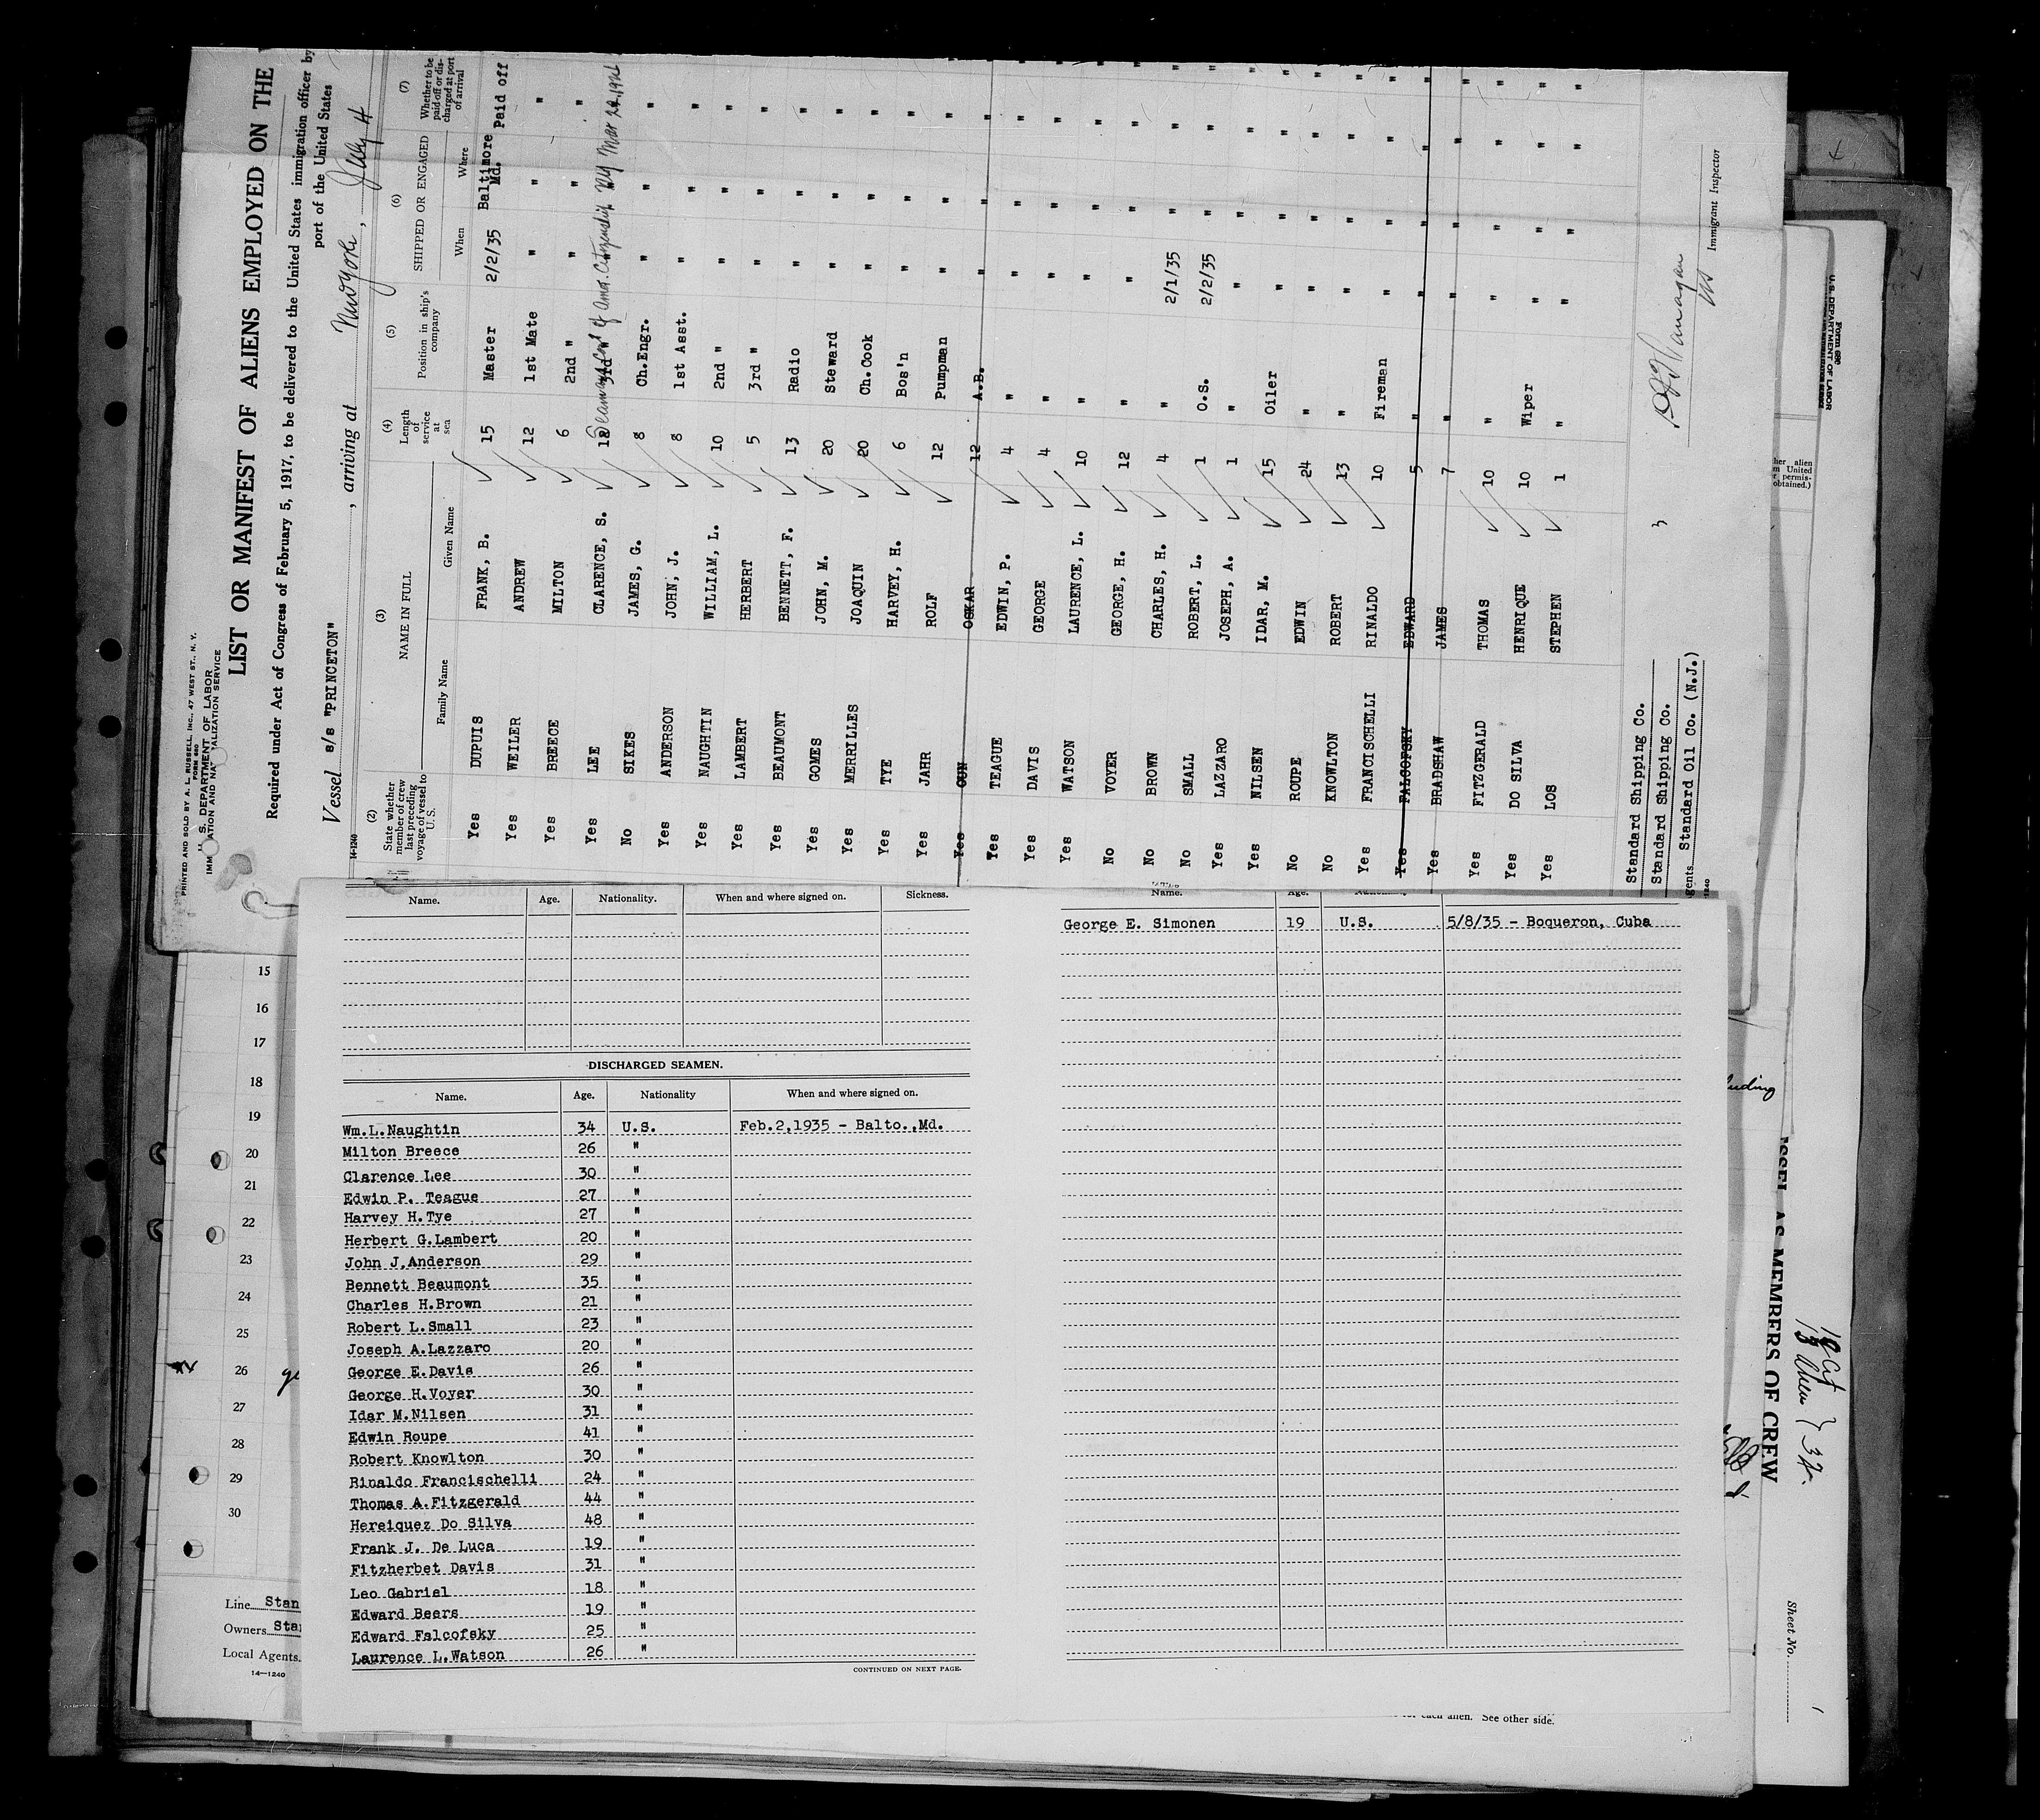 PRINTED AND SOLD BY A. L. RUSSELL, INC., 47 WEST ST., N. Y.
FORM 680
U. S. DEPARTMENT OF LABOR
IMMIGRATION AND NATURALIZATION SERVICE
LIST OR MANIFEST OF ALIENS EMPLOYED ON THE
Required under Act of Congress of February 5, 1917, to be delivered to the United States immigration officer by
port of the United States
Vessel s/s "PRINCETON", arriving at New York, July 4
14-1240
(2) (3) (4) (5) (6) (7)
State whether member of crew last preceding voyage of vessel to U. S. NAME IN FULL Length of service at sea Position in ship's company SHIPPED OR ENGAGED Whether to be paid off or discharged at port of arrival
Family Name Given Name When Where
Yes DUPUIS FRANK, B. 15 Master 2/2/35 Baltimore Md. Paid off
Yes WEILER ANDREW 12 1st Mate " " "
Yes BREECE MILTON 6 2nd " " " "
Yes LEE CLARENCE, S. 12 3rd " " " "
Seaman's Cert of Amer. Citizenship NY Mar 22, 1926
No SIKES JAMES, G. 8 Ch.Engr. " " "
Yes ANDERSON JOHN, J. 8 1st Asst. " " "
Yes NAUGHTIN WILLIAM, L. 10 2nd " " " "
Yes LAMBERT HERBERT 5 3rd " " " "
Yes BEAUMONT BENNETT, F. 13 Radio " " "
Yes GOMES JOHN, M. 20 Steward " " "
Yes MERRILLES JOAQUIN 20 Ch.Cook " " "
Yes TYE HARVEY, H. 6 Bos'n " " "
Yes JAHR ROLF 12 Pumpman " " "
Yes GUN OSKAR 12 A.B. " " "
Yes TEAGUE EDWIN, P. 4 " " " "
Yes DAVIS GEORGE 4 " " " "
Yes WATSON LAURENCE, L. 10 " " " "
No VOYER GEORGE, H. 12 " " " "
No BROWN CHARLES, H. 4 " 2/1/35 " "
No SMALL ROBERT, L. 1 O.S. 2/2/35 " "
Yes LAZZARO JOSEPH, A. 1 " " " "
Yes NILSEN IDAR, M. 15 Oiler " " "
No ROUPE EDWIN 24 " " " "
No KNOWLTON ROBERT 13 " " " "
Yes FRANCISCHELLI RINALDO 10 Fireman " " "
Yes FALCOFSKY EDWARD 5 " " " "
Yes BRADSHAW JAMES 7 " " " "
Yes FITZGERALD THOMAS 10 " " " "
Yes DO SILVA HENRIQUE 10 Wiper " " "
Yes LOS STEPHEN 1 " " " "
Standard Shipping Co.
Standard Shipping Co.
Agents Standard Oil Co. (N.J.)
3
Immigrant Inspector
Name. Age. Nationality. When and where signed on. Sickness.
DISCHARGED SEAMEN.
Name. Age. Nationality When and where signed on.
Wm.L.Naughtin 34 U.S. Feb.2,1935 - Balto.,Md.
Milton Breece 26 "
Clarence Lee 30 "
Edwin P. Teague 27 "
Harvey H.Tye 27 "
Herbert G.Lambert 20 "
John J.Anderson 29 "
Bennett Beaumont 35 "
Charles H.Brown 21 "
Robert L.Small 23 "
Joseph A.Lazzaro 20 "
George E.Davis 26 "
George H.Voyer 30 "
Idar M.Nilsen 31 "
Edwin Roupe 41 "
Robert Knowlton 30 "
Rinaldo Francischelli 24 "
Thomas A.Fitzgerald 44 "
Hereiquez Do Silva 48 "
Frank J. De Luca 19 "
Fitzherbet Davis 31 "
Leo Gabriel 18 "
Edward Beers 19 "
Edward Falcofsky 25 "
Laurence L.Watson 26 "
CONTINUED ON NEXT PAGE.
Name. Age.
George E. Simonen 19 U.S. 5/8/35 - Boqueron, Cuba
15
16
17
18
19
20
21
22
23
24
25
26
27
28
29
30
Line Stan
Owners Stan
Local Agents.
14-1240
each alien. See other side.
Form 680
U. S. DEPARTMENT OF LABOR
her alien
m United
permis-
obtained.)
VESSEL AS MEMBERS OF CREW
Sheet No.